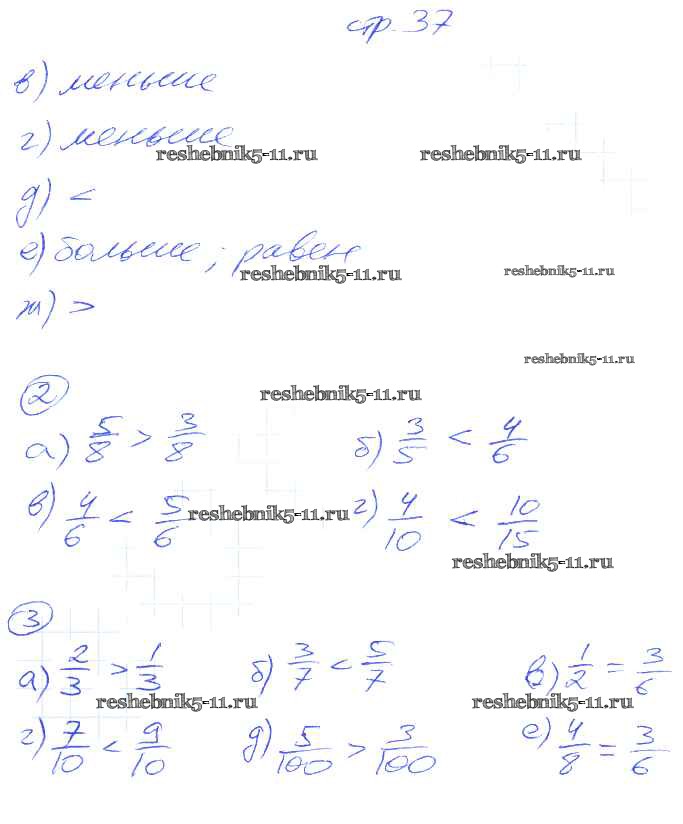 стр. 37
в) меньше
г) меньше
reshebnik5-11.ru reshebnik5-11.ru
д) <
е) больше; равен
reshebnik5-11.ru reshebnik5-11.ru
ж) >
reshebnik5-11.ru
2 reshebnik5-11.ru
а) 5/8 > 3/8 б) 3/5 < 4/6
в) 4/6 < 5/6 г) 4/10 < 10/15
reshebnik5-11.ru
reshebnik5-11.ru
3
а) 2/3 > 1/3 б) 3/7 < 5/7 в) 1/2 = 3/6
reshebnik5-11.ru reshebnik5-11.ru
г) 7/10 < 9/10 д) 5/100 > 3/100 е) 4/8 = 3/6